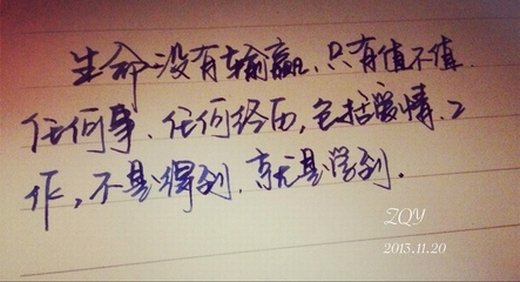 生命没有输赢、只有值不值.
任何事、任何经历,包括爱情、工
作,不是得到.就是学到.
ZQY
2013.11.20